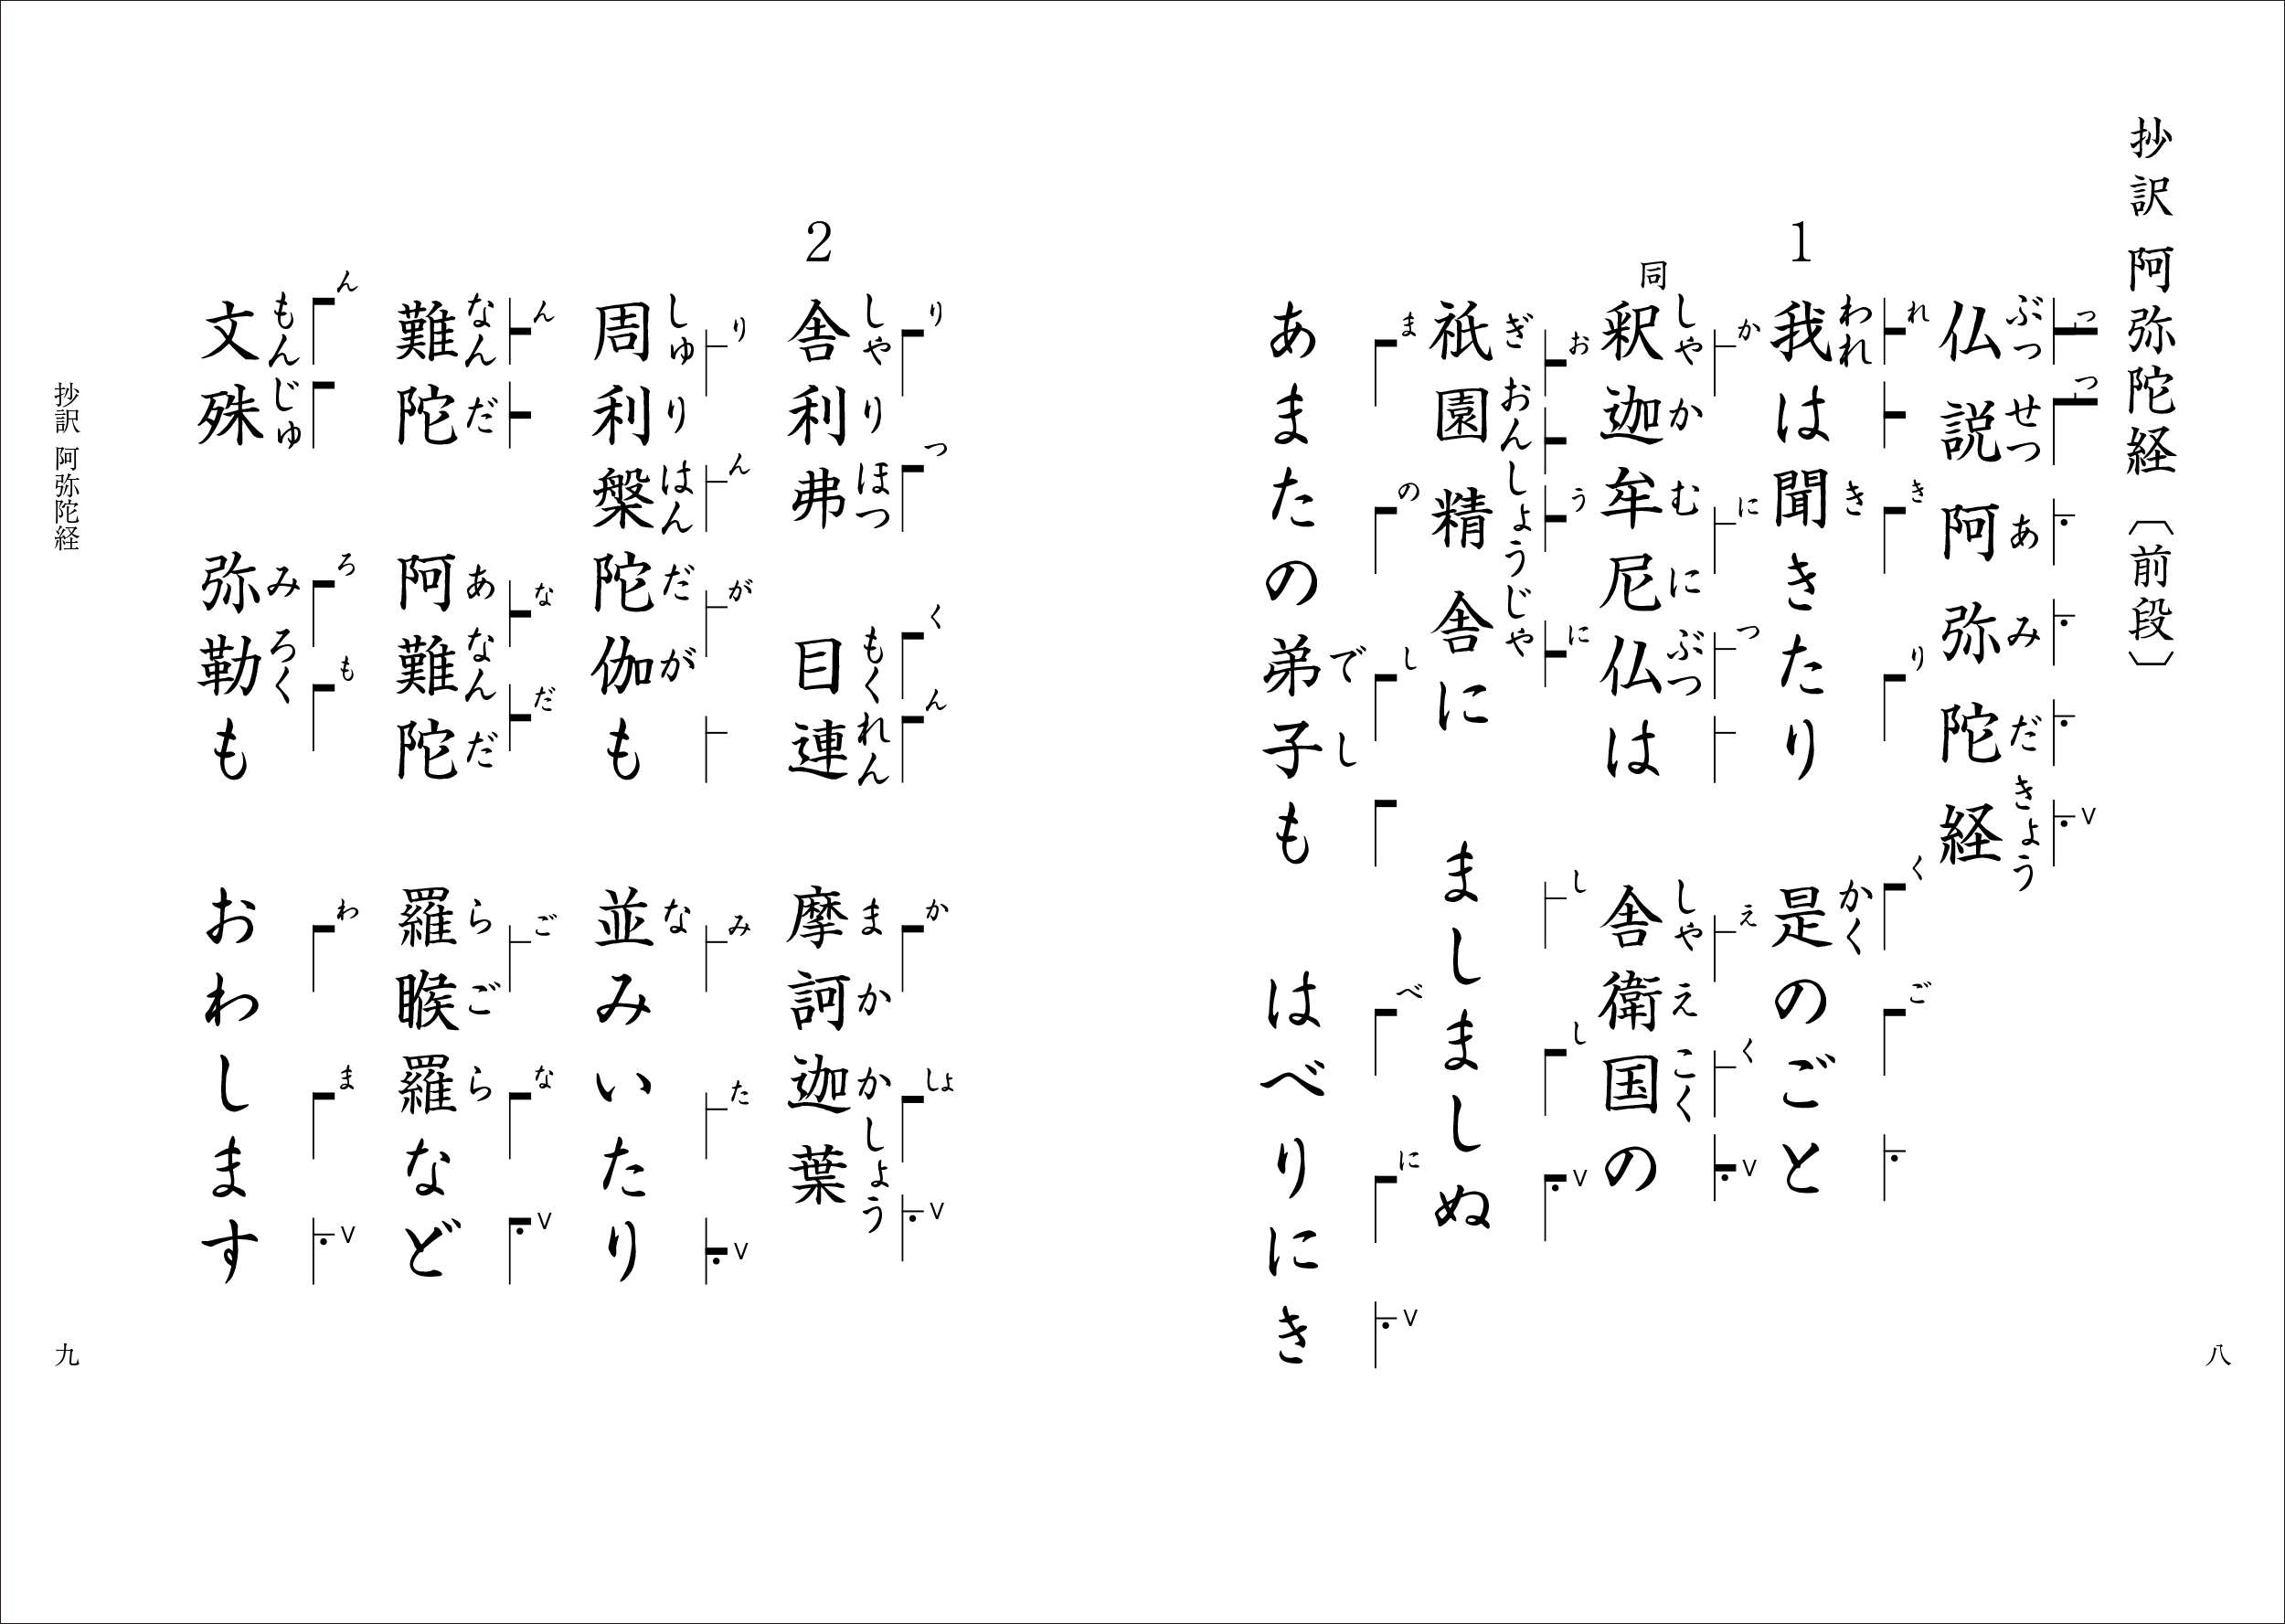 抄訳 阿弥陀経〔前段〕
仏説阿弥陀経
1
我は聞きたり 是のごと
同
釈迦牟尼仏は 舎衛国の
祇園精舎に ましましぬ
あまたの弟子も はべりにき
八
2
舎利弗 目連 摩訶迦葉
周利槃陀伽も 並みいたり
難陀 阿難陀 羅睺羅など
文殊 弥勒も おわします
抄訳 阿弥陀経
九